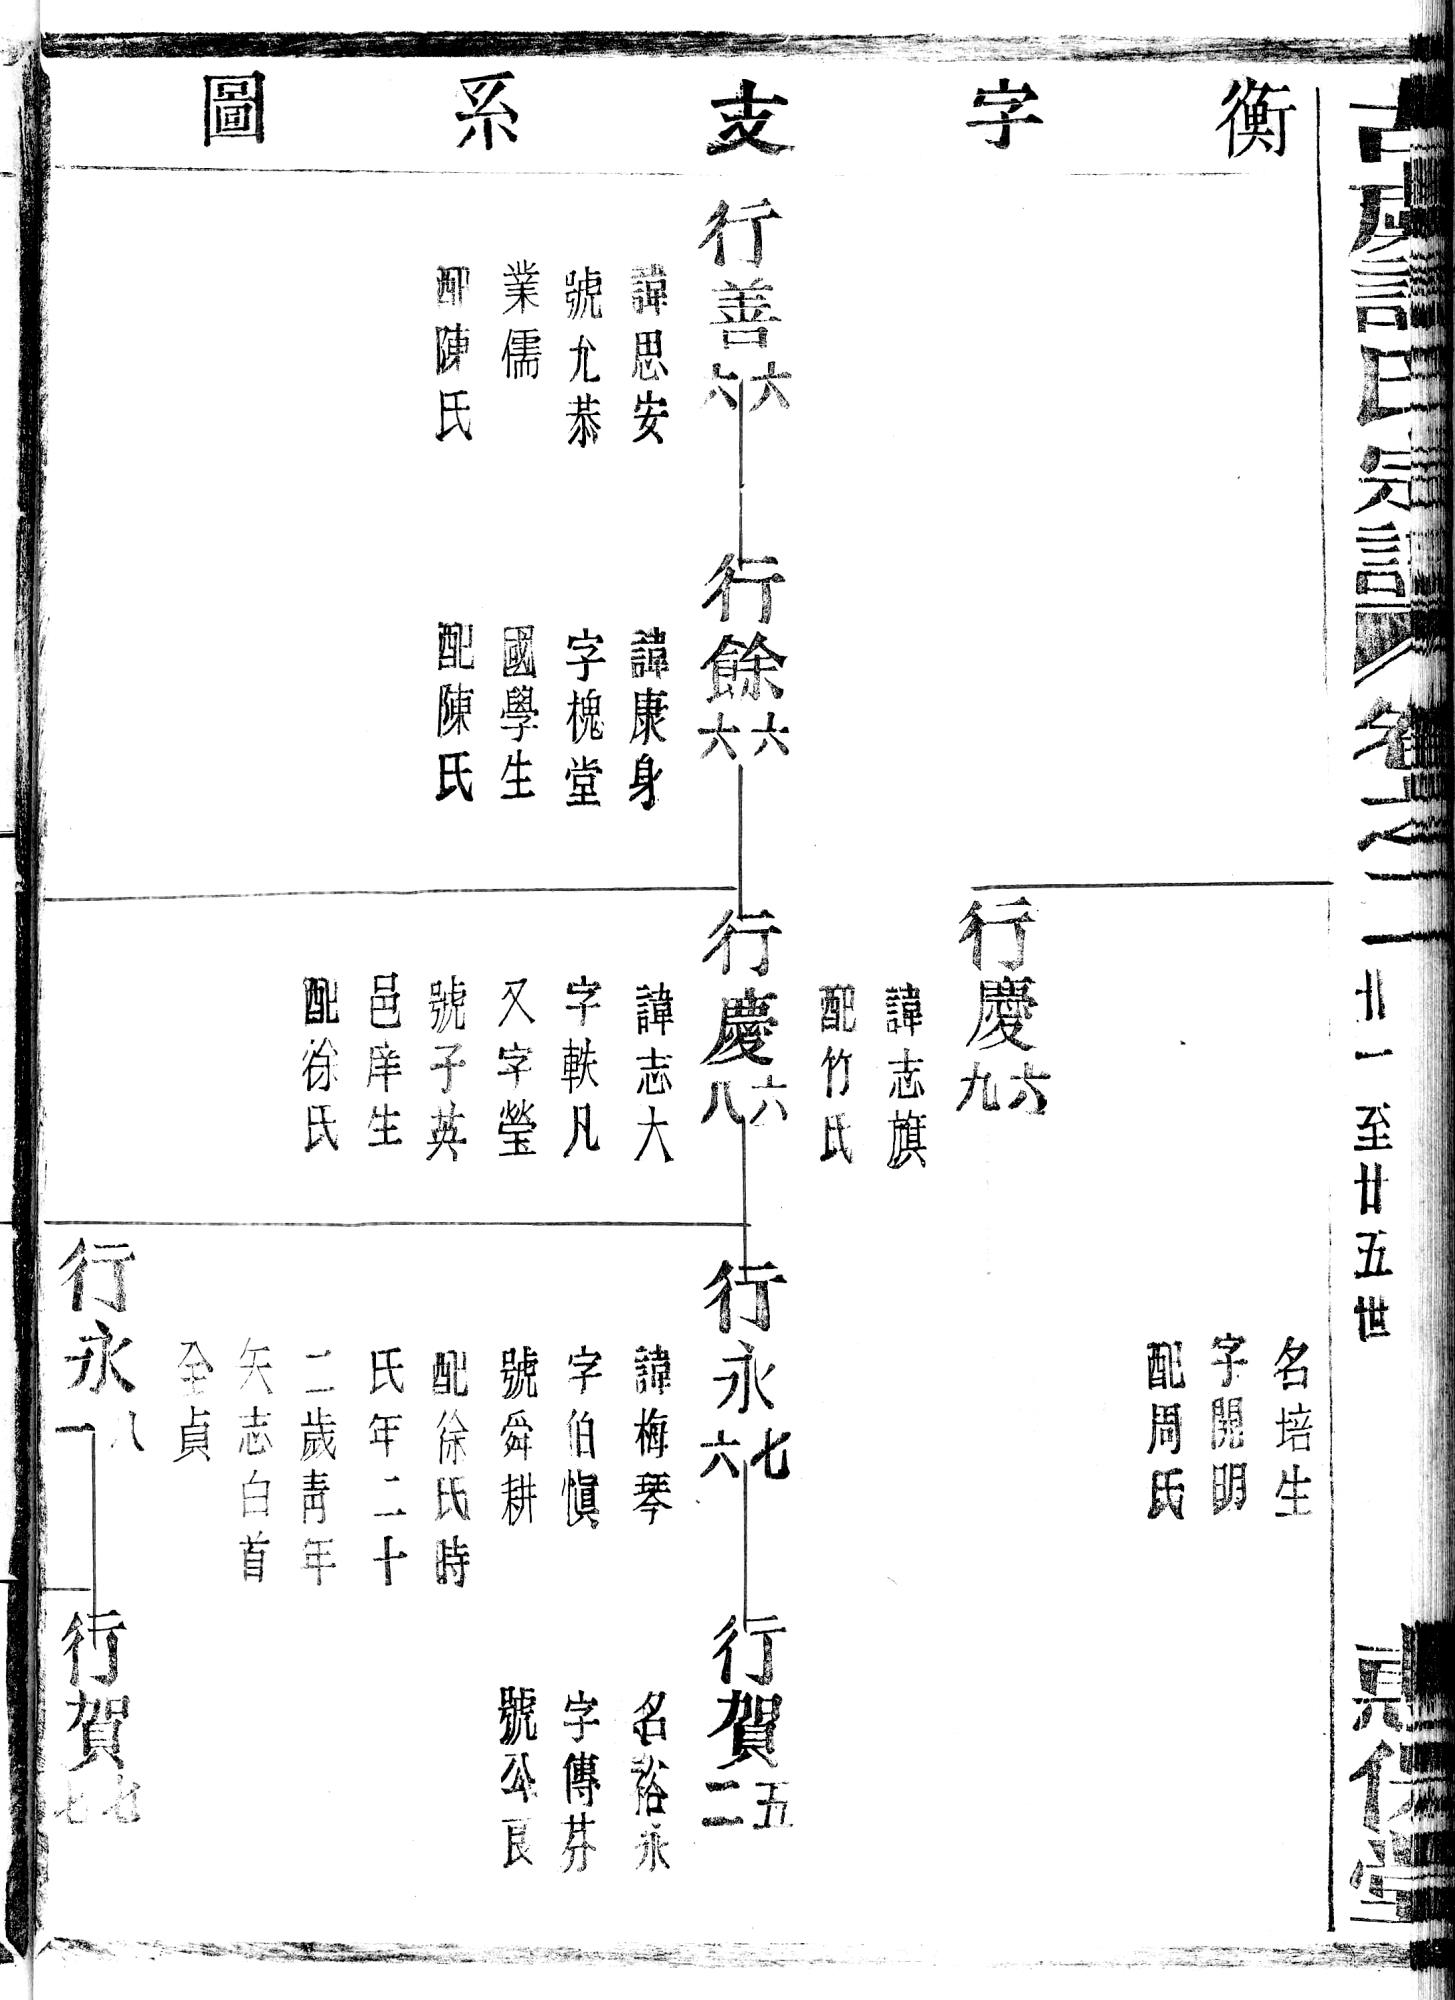 古虞許氏宗譜
卷之二
廿一至廿五世
衡字支系圖
名培生
字開明
配周氏
行慶六九
諱志旗
配竹氏
行善六六
諱思安
號允恭
業儒
配陳氏
行餘六六
諱康身
字槐堂
國學生
配陳氏
行慶六八
諱志大
字軼凡
又字瑩
號子英
邑庠生
配徐氏
行永七六
諱梅琴
字伯愼
號舜耕
配徐氏時
氏年二十
二歲靑年
矢志白首
全貞
行賀五二
名裕永
字傳芬
號公良
行永八一
行賀七七